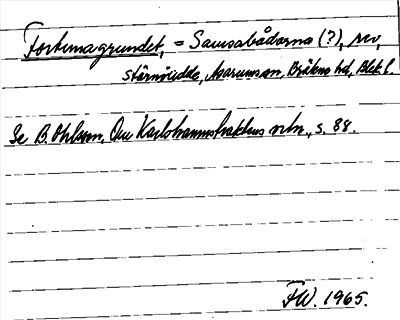 Fortunagrundet, = Samsabådarna (?), sv,
Stärnö udde, Asarums sn, Bräkne hd, Blek. l.
Se B. Ohlson, Om Karlshamnstraktens ortn., s. 88.
FW. 1965.